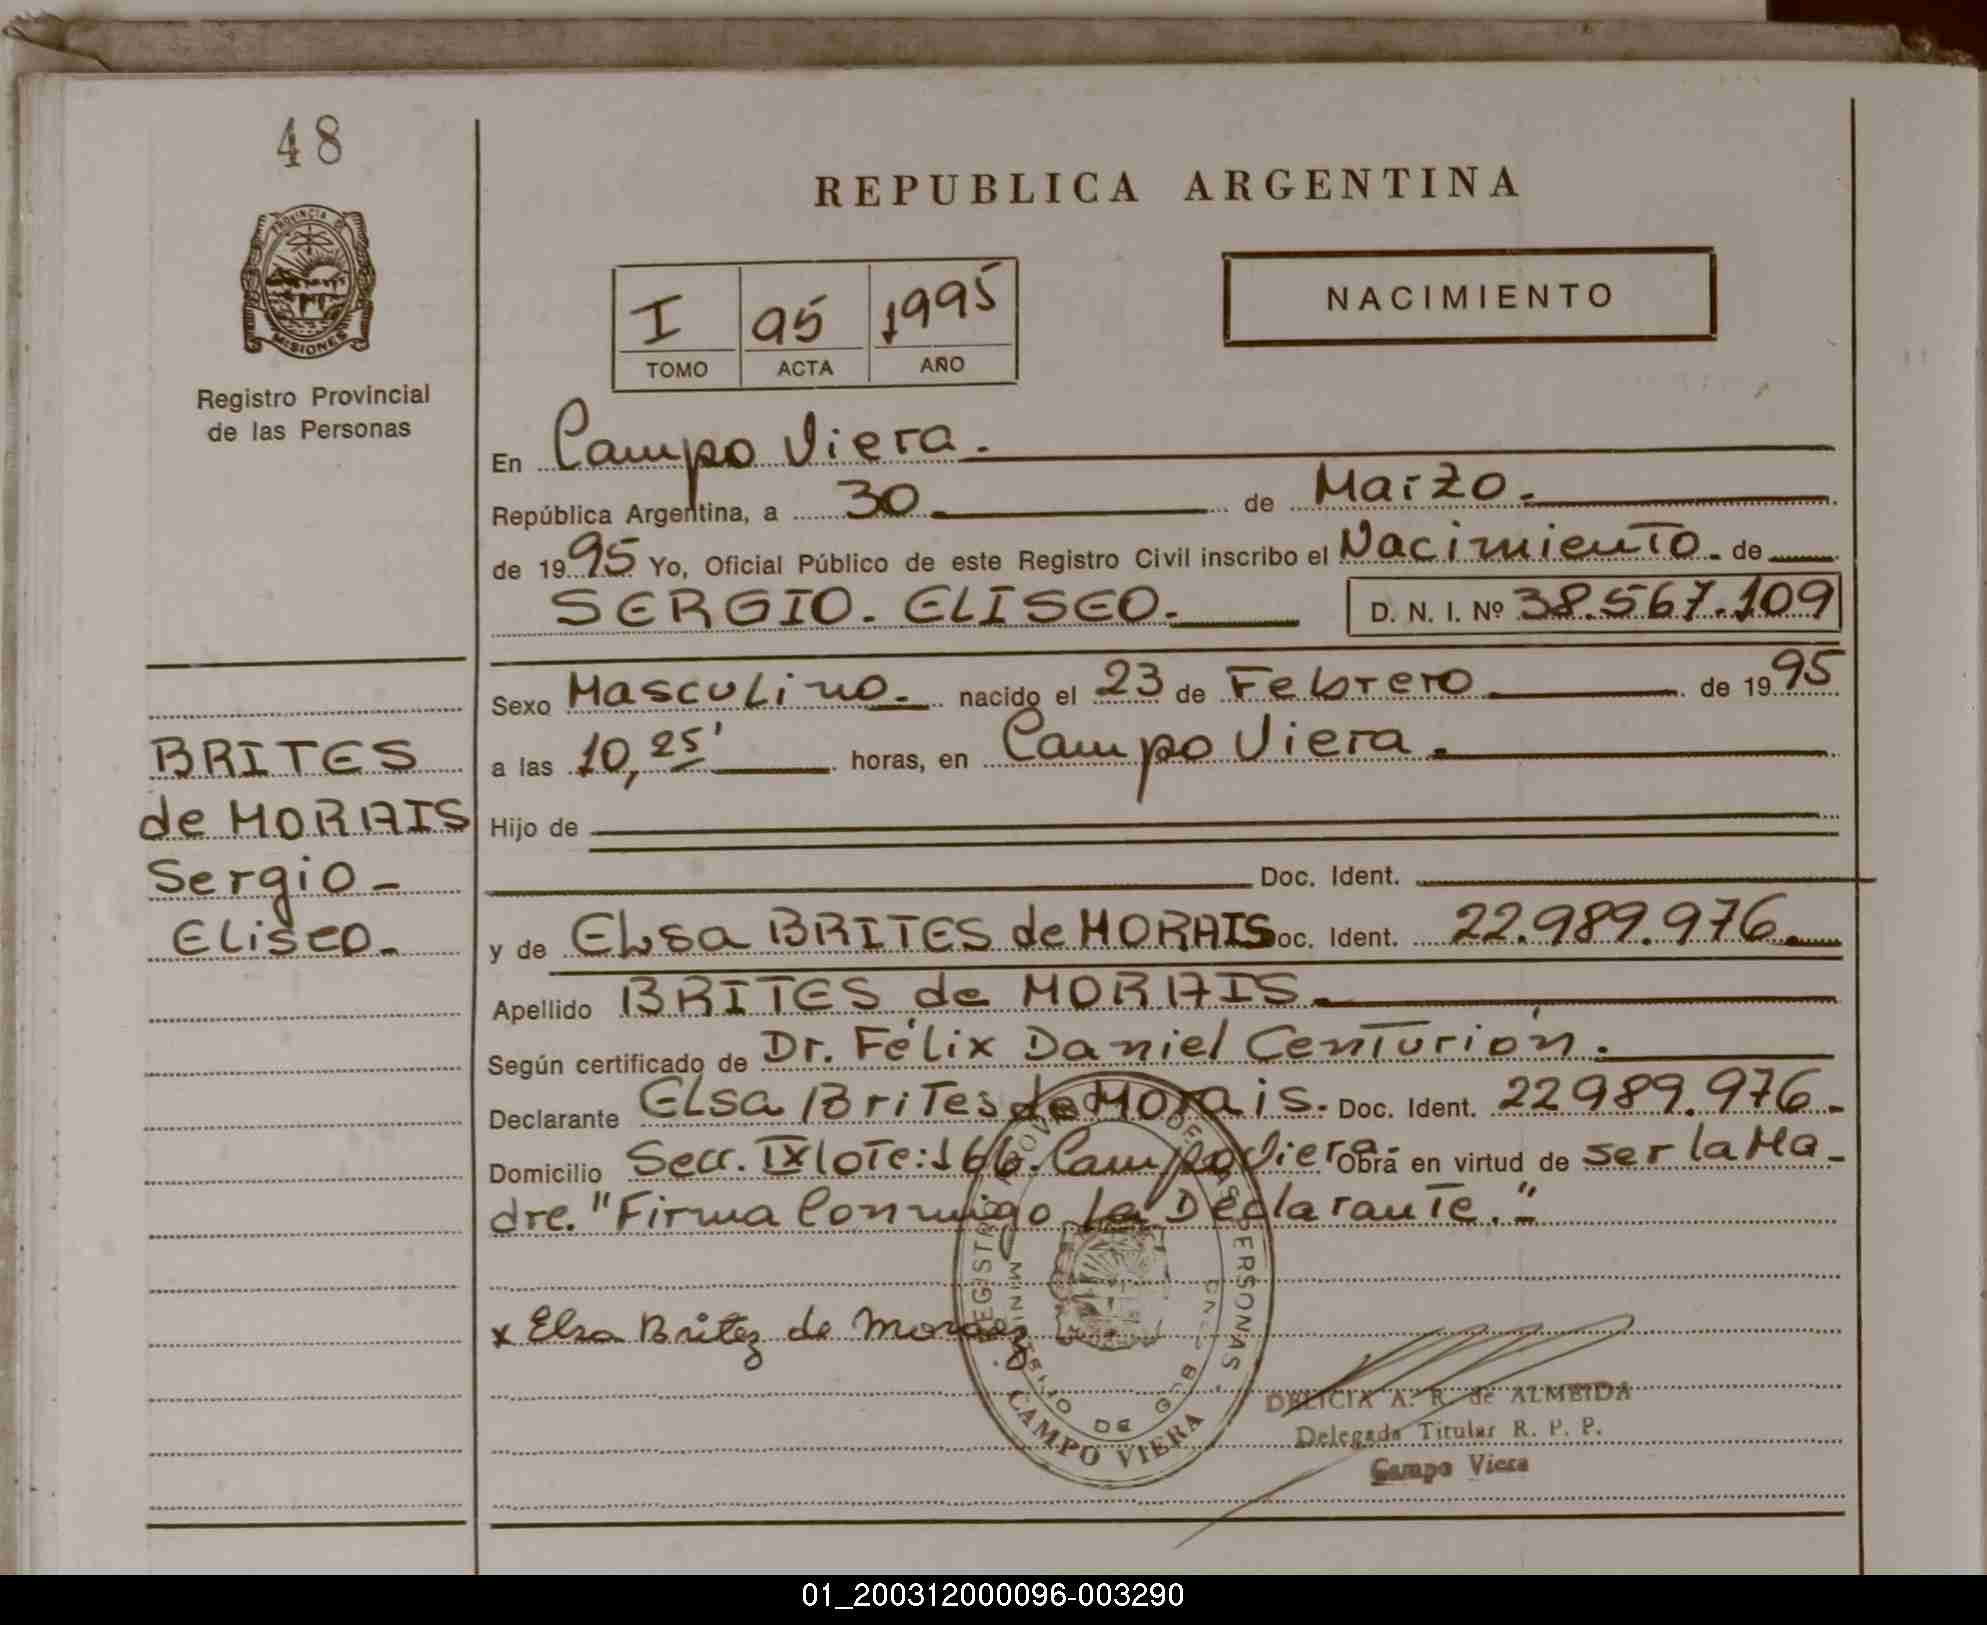 48
REPUBLICA ARGENTINA
PROVINCIA DE
MISIONES
Registro Provincial
de las Personas
I 95 1995
TOMO ACTA AÑO
NACIMIENTO
En Campo Viera.
República Argentina, a 30 de Marzo.
de 1995 Yo, Oficial Público de este Registro Civil inscribo el Nacimiento. de
SERGIO. ELISEO. D. N. I. Nº 38.567.109
Sexo Masculino. nacido el 23 de Febrero de 1995
a las 10,25' horas, en Campo Viera.
Hijo de
Doc. Ident.
y de ELsa BRITES de MORAIS Doc. Ident. 22.989.976.
Apellido BRITES de MORAIS.
Según certificado de Dr. Félix Daniel Centurión.
Declarante ELsa Brites de Morais. Doc. Ident. 22989.976.
Domicilio Secc. IX lote: 166. Campo Viera Obra en virtud de ser la Ma-
dre. "Firma Conmigo la Declarante."
BRITES
de MORAIS
Sergio -
Eliseo.
x Elsa Britez de Moraez
DE LAS PERSONAS
MINISTERIO DE GOB
CAMPO VIERA
DELICIA A. R. de ALMEIDA
Delegada Titular R. P. P.
Campo Viera
01_200312000096-003290